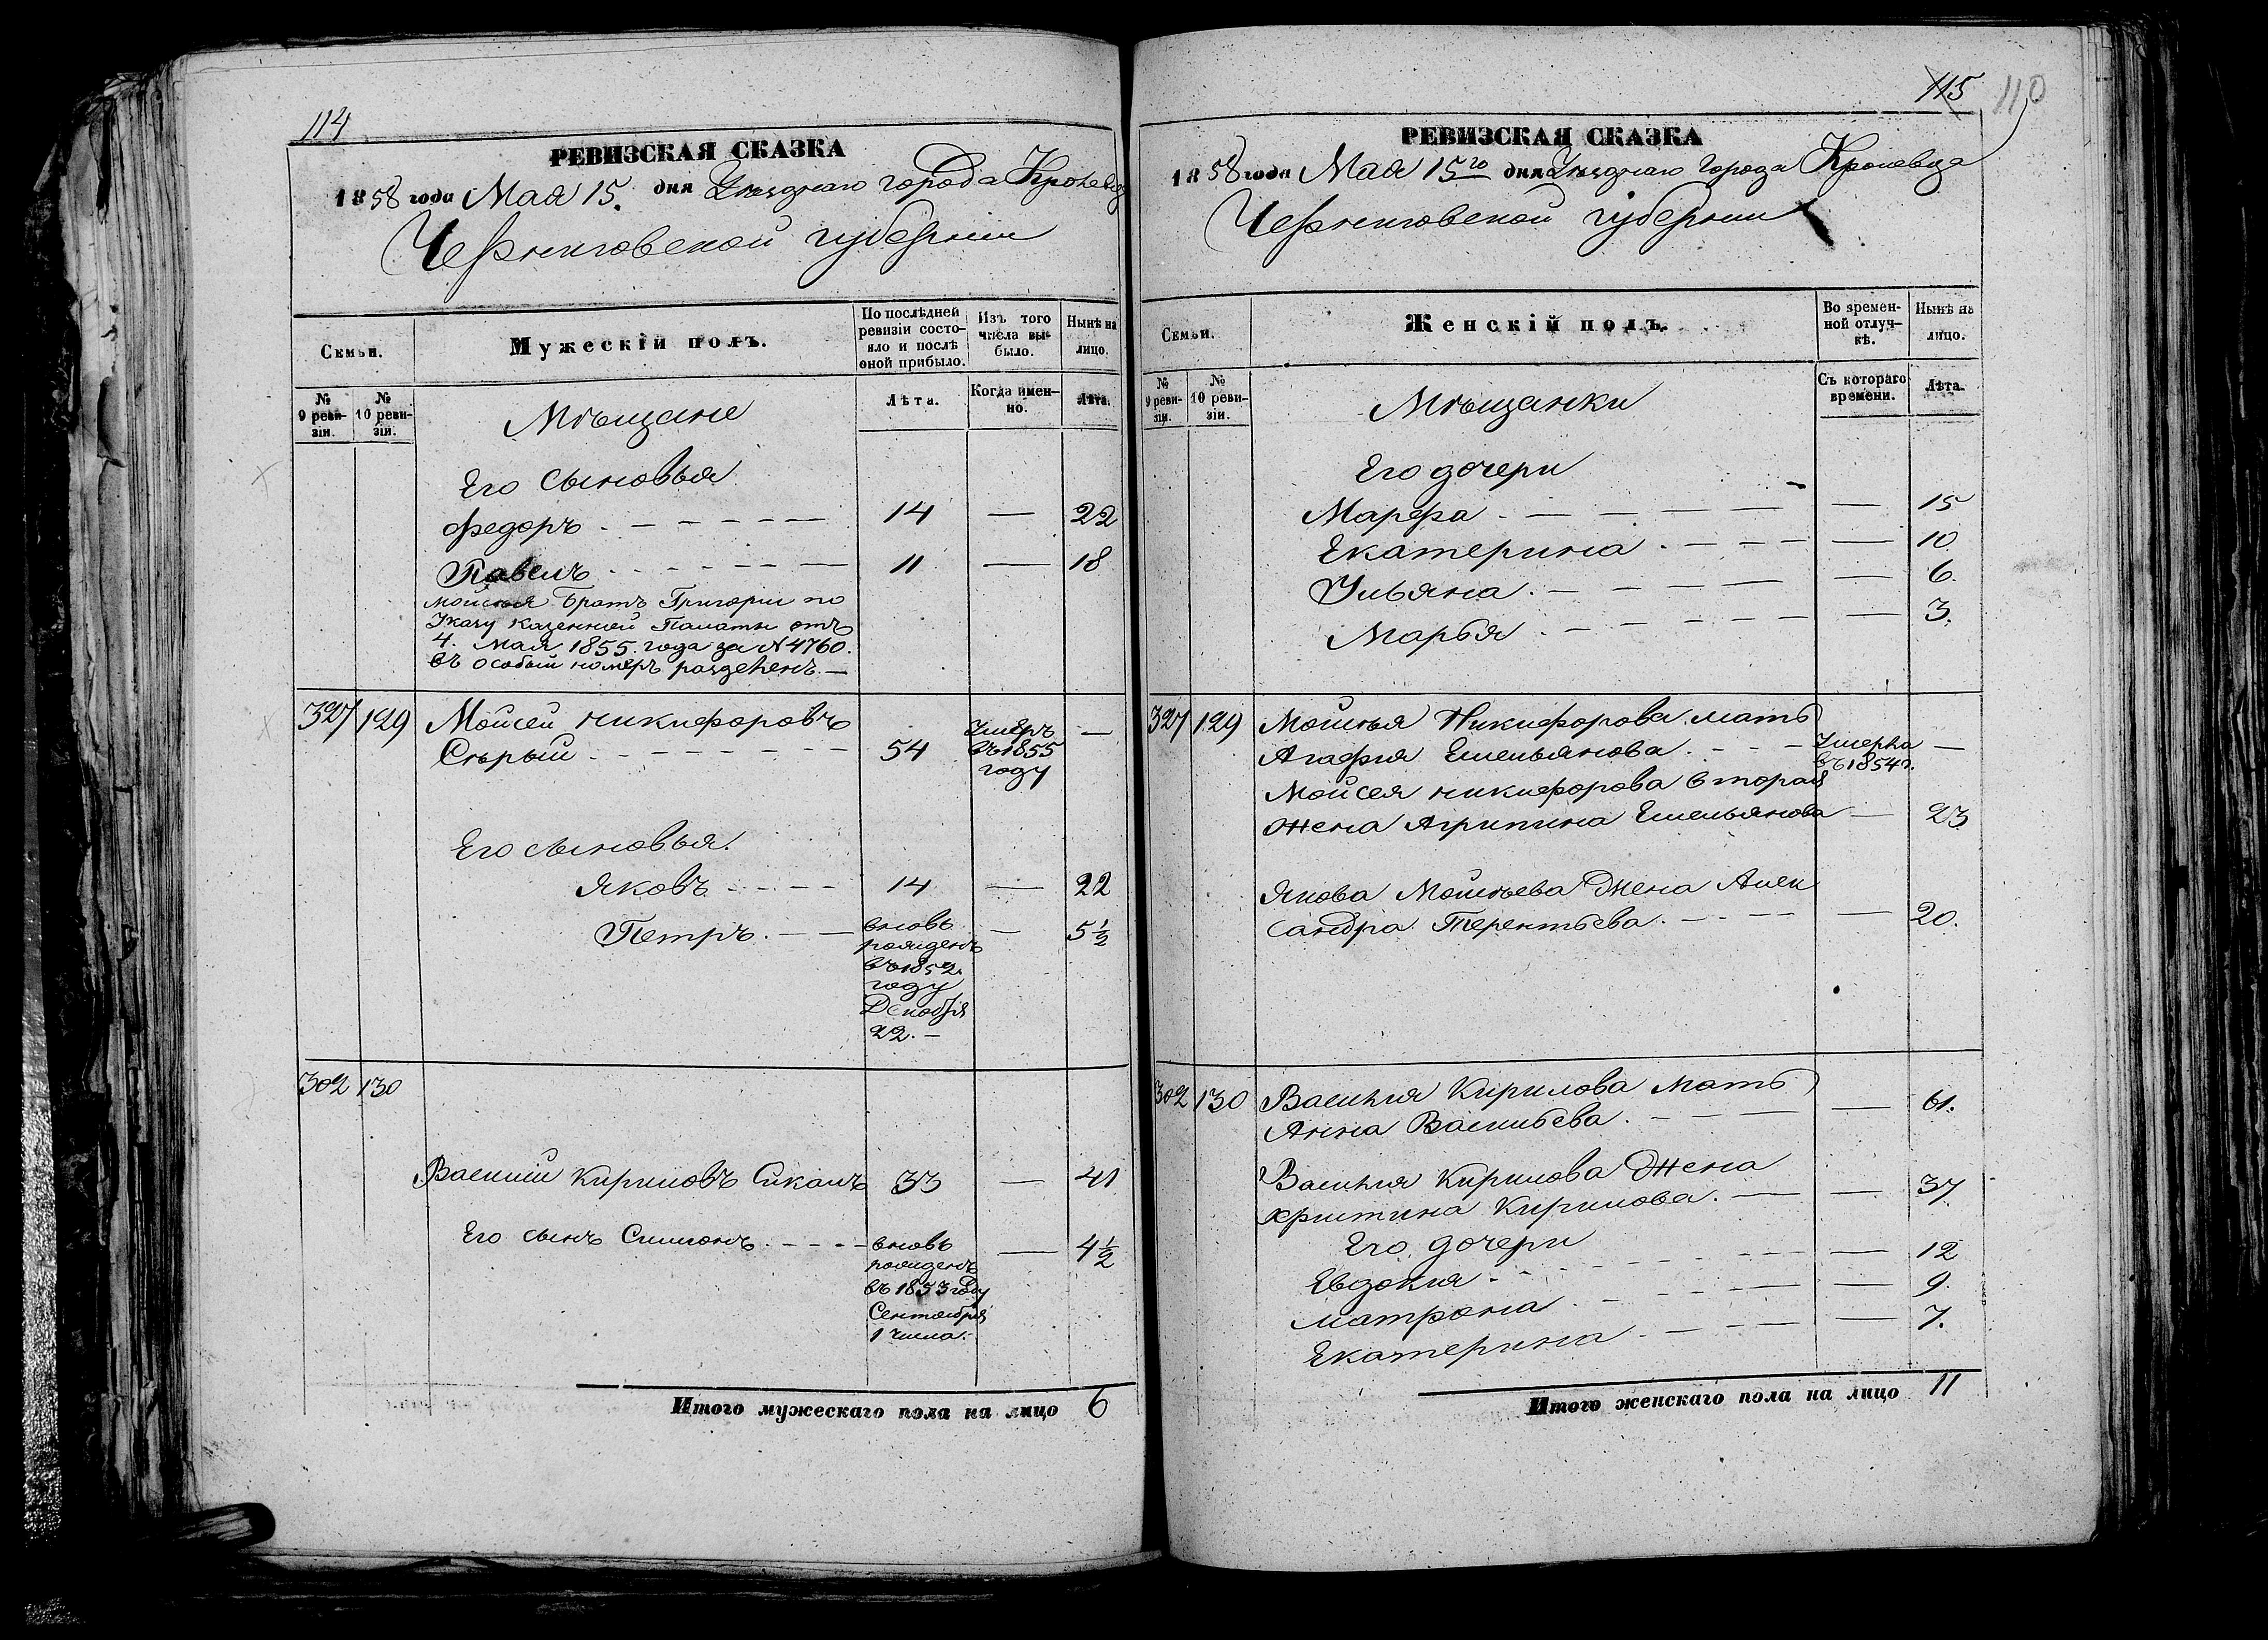 114
РЕВИЗСКАЯ СКАЗКА
1858 года Мая 15. дня Уѣзднаго города Кролевца
Черниговской губерніи
Семьи.
Мужескій полъ.
По послѣдней ревизіи состояло и послѣ оной прибыло.
Изъ того числа выбыло.
Нынѣ на лицо.
№ 9 ревизіи.
№ 10 ревизіи.
Мѣщане
Лѣта.
Когда именно.
Лѣта.
Его сыновья
Федоръ . — — — — — 14 — 22
Павелъ . — — — — — 11 — 18
Мойсея Братъ Григорій по
Указу Казенной Палаты отъ
4. Мая 1855 года за №4760.
въ особый номеръ раздѣленъ. —
327 129 Мойсей Никифоровъ
Сѣрый . — — — — — 54 Умеръ въ 1855 году —
Его сыновья.
Яковъ — — — — 14 — 22
Петръ . — — вновь рожденъ въ 1852 году Декабря 22. — — 5½
302 130
Василій Кириловъ Сикалъ 33 — 41
Его сынъ Симионъ . — — — вновь рожденъ въ 1853 году Сентября 1 числа. — — 4½
Итого мужескаго пола на лицо 6
115 110
РЕВИЗСКАЯ СКАЗКА
1858 года Мая 15го дня Уѣзднаго города Кролевца
Черниговской губерніи
Семьи.
Женскій полъ.
Во временной отлучкѣ.
Нынѣ на лицо.
№ 9 ревизіи.
№ 10 ревизіи.
Мѣщанки
Съ котораго времени.
Лѣта.
Его дочери
Марфа . — — — — — — 15
Екатерина . — — — — 10
Ульяна . — — — — — 6.
Марья . — — — — — — 3.
327 129 Мойсѣя Никифорова мать
Агафия Емельянова . — — — Умерла въ 1854 г. —
Мойсея Никифорова вторая
жена Агрипина Емельянова — 23
Якова Мойсѣева жена Алек
сандра Терентьева . — — — — 20.
302 130 Василия Кирилова мать
Анна Васильева . — — — — 61.
Василия Кирилова жена
Христина Кирилова . — — 37.
Его дочери
Евдокия . — — — — 12
Матрона . — — — — 9.
Екатерина . — — — — 7.
Итого женскаго пола на лицо 11